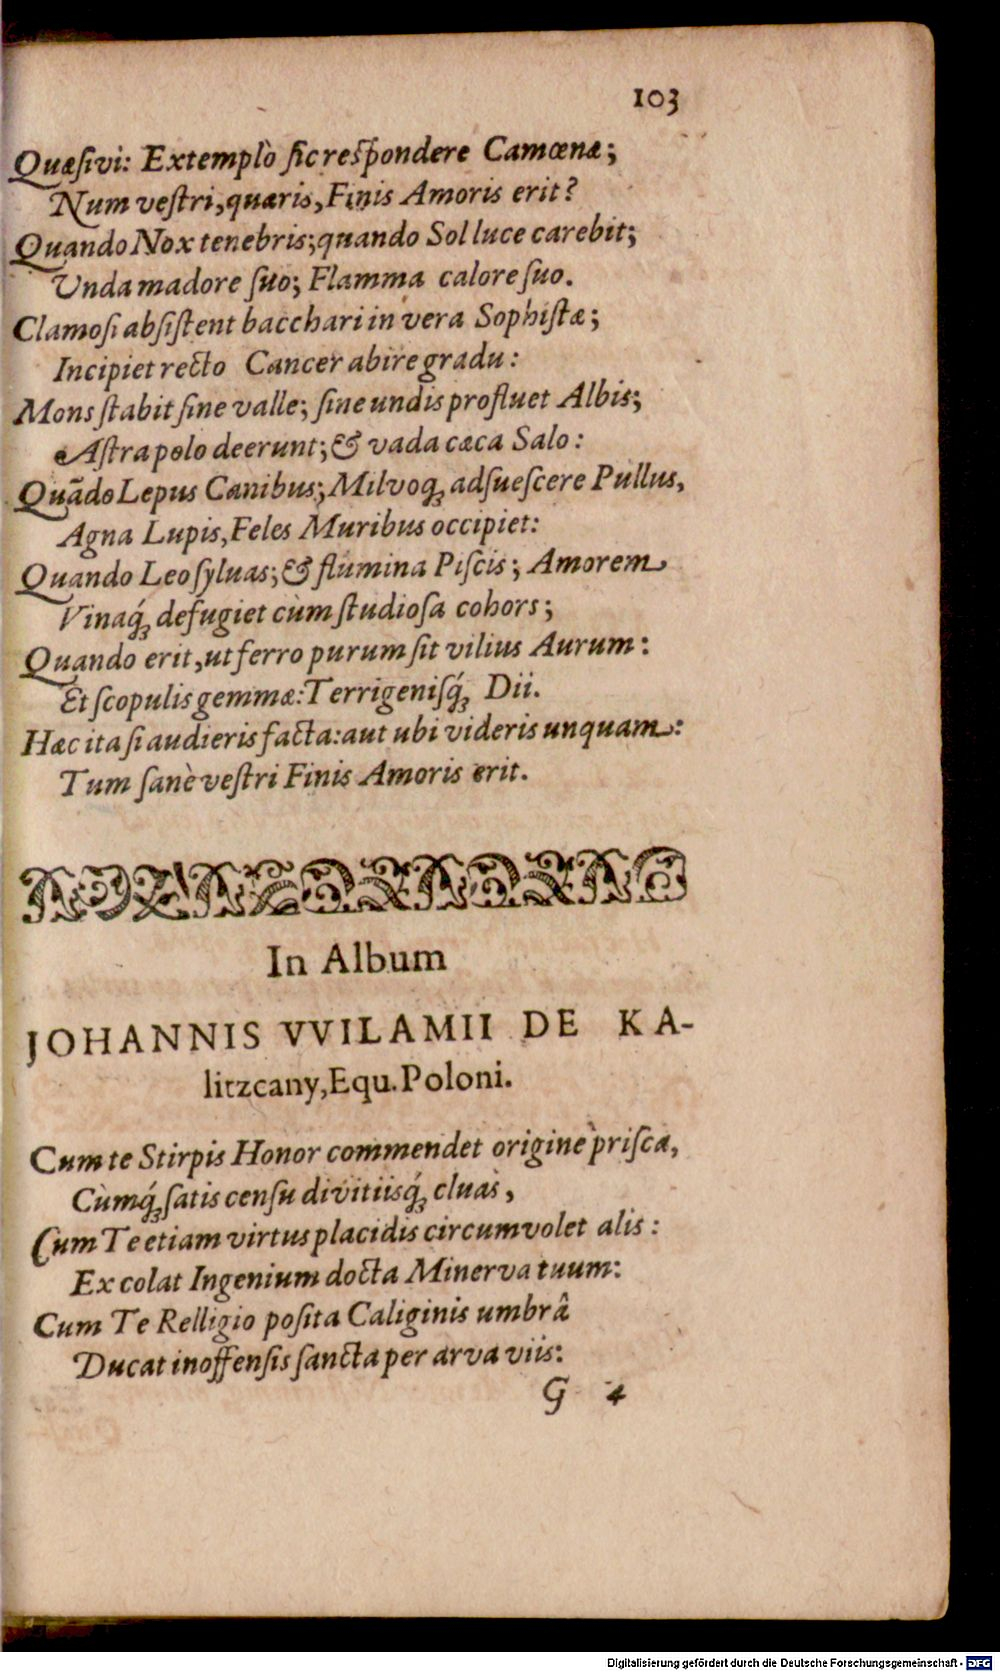 103
Quæſivi: Extemplò ſic reſpondere Camœnæ;
Num veſtri, quæris, Finis Amoris erit?
Quando Nox tenebris; quando Sol luce carebit;
Unda madore ſuo; Flamma calore ſuo.
Clamoſi abſiſtent bacchari in vera Sophiſtæ;
Incipiet recto Cancer abire gradu:
Mons ſtabit ſine valle; ſine undis profluet Albis;
Aſtra polo deerunt; & vada cæca Salo:
Quãdo Lepus Canibus; Milvoq́ꝫ adſueſcere Pullus,
Agna Lupis, Feles Muribus occipiet:
Quando Leo ſyluas; & flumina Piſcis; Amorem
Vinaq́ꝫ defugiet cùm ſtudioſa cohors;
Quando erit, ut ferro purum ſit vilius Aurum:
Et ſcopulis gemmæ: Terrigeniſq́ꝫ Dii.
Hæc ita ſi audieris facta: aut ubi videris unquam:
Tum ſanè veſtri Finis Amoris erit.
In Album
JOHANNIS VVILAMII DE KA-
litzcany, Equ. Poloni.
Cum te Stirpis Honor commendet origine priſcæ,
Cùmq́ꝫ ſatis cenſu divitiisq́ꝫ cluas,
Cum Te etiam virtus placidis circumvolet alis:
Excolat Ingenium docta Minerva tuum:
Cum Te Relligio poſita Caliginis umbrâ
Ducat inoffenſis ſancta per arva viis:
G 4
Digitalisierung gefördert durch die Deutsche Forschungsgemeinschaft - DFG